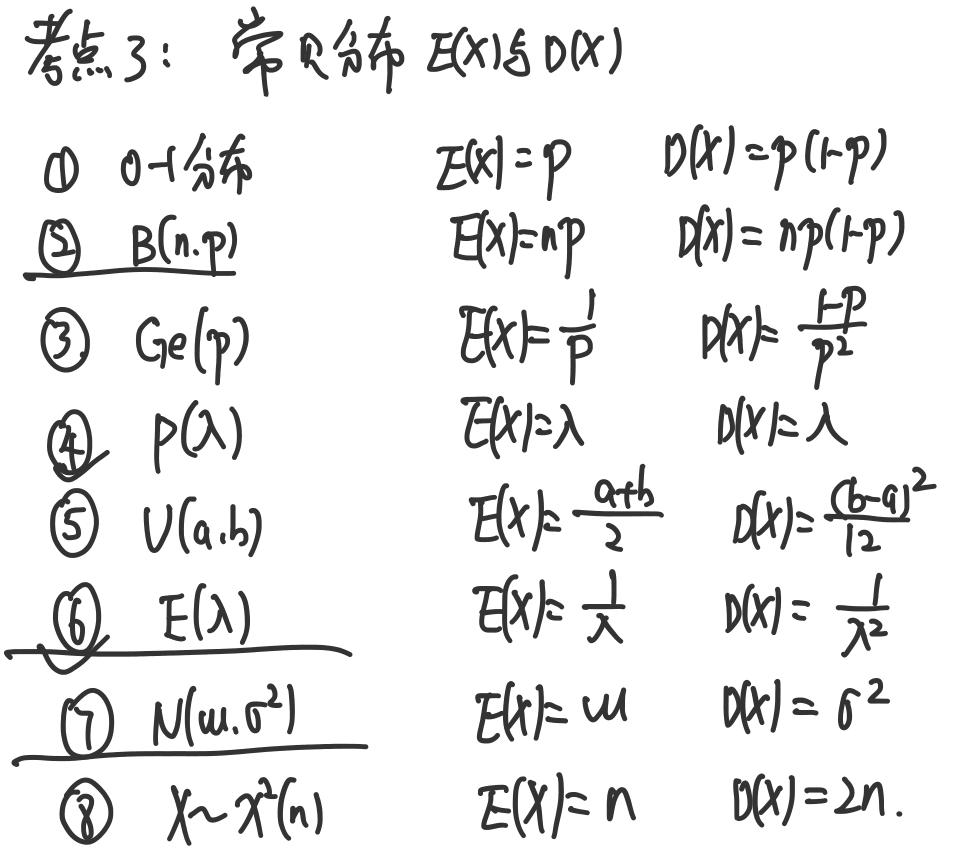 考点3: 常见分布 E(X)与D(X)
① 0-1分布 E(X)=p D(X)=p(1-p)
② B(n.p) E(X)=np D(X)=np(1-p)
③ Ge(p) E(X)=1/p D(X)=(1-p)/p²
④ P(λ) E(X)=λ D(X)=λ
⑤ U(a.b) E(X)=(a+b)/2 D(X)=(b-a)²/12
⑥ E(λ) E(X)=1/λ D(X)=1/λ²
⑦ N(μ.σ²) E(X)=μ D(X)=σ²
⑧ X~χ²(n) E(X)=n D(X)=2n.